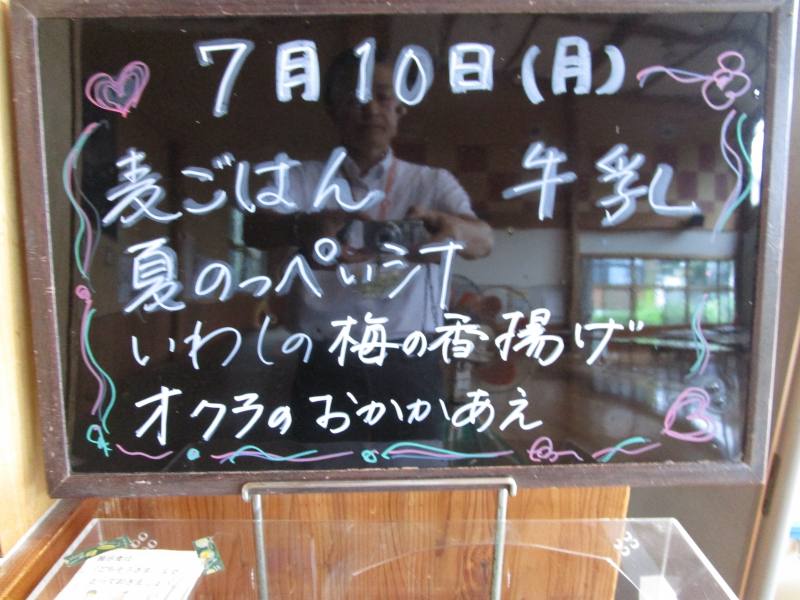 7月10日(月)
麦ごはん 牛乳
夏のっぺい汁
いわしの梅の香揚げ
オクラのおかかあえ